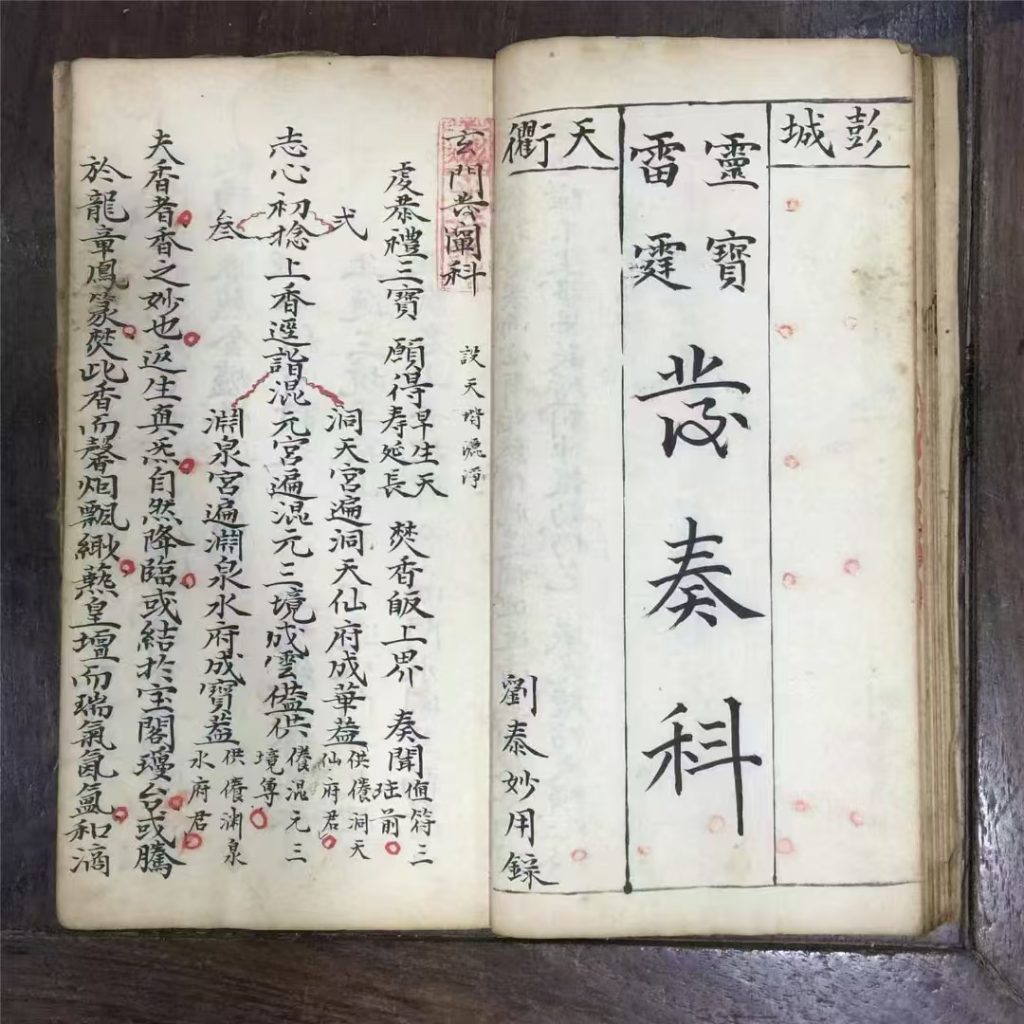 彭城
靈寶
雷霆
發奏科
天衢
劉泰妙用錄
玄門發闡科 設天堦灑淨
虔恭禮三寶 願得早生天寿延長 焚香皈上界 奏聞值符三
玹前
弍
洞天宮遍洞天仙府成華蓋供養洞天
仙府君
志心初捻上香遥詣混元宮遍混元三境成雲蓋供養混元三
境尊
叁
淵泉宮遍淵泉水府成寶蓋供養渊泉
水府君
夫香者香之妙也返生真炁自然降臨或結於宝閣瓊台或騰
於龍章鳳篆焚此香而馨烟飄緲爇皇壇而瑞氣氤氲和滴